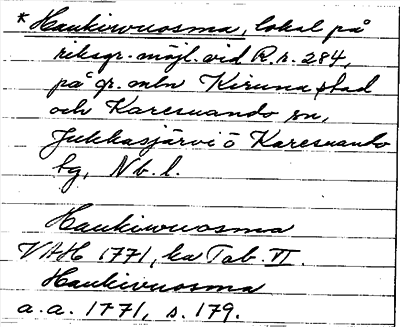 * Haukiwuosma, lokal på
riksgr. möjl. vid R.r. 284,
på gr. mln Kiruna stad
och Karesuando sn,
Jukkasjärvi o Karesuando
tg, Nb. l.
Haukiwuosma
VAH 1771, ka Tab. VI.
Haukivuosma
a.a. 1771, s. 179.